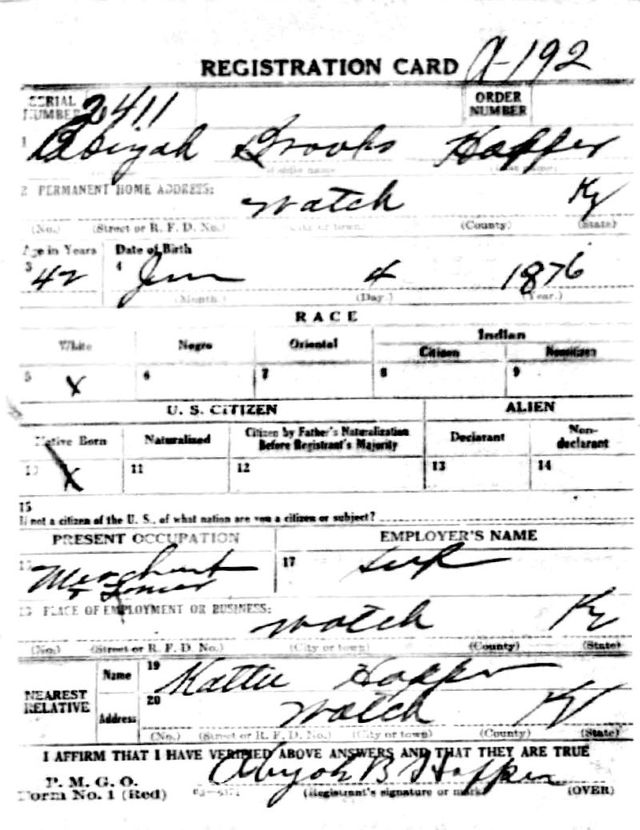 REGISTRATION CARD A-192
SERIAL NUMBER 2411 ORDER NUMBER
1 Abijah Brooks Hopper
2 PERMANENT HOME ADDRESS: Watch Ky
(No.) (Street or R. F. D. No.) (City or town) (County) (State)
Age in Years Date of Birth
3 42 4 Jun 4 1876
(Month.) (Day.) (Year.)
RACE
White Negro Oriental Indian
Citizen Noncitizen
5 X 6 7 8 9
U. S. CITIZEN ALIEN
Native Born Naturalized Citizen by Father's Naturalization Before Registrant's Majority Declarant Non-declarant
10 X 11 12 13 14
15
If not a citizen of the U. S., of what nation are you a citizen or subject?
PRESENT OCCUPATION EMPLOYER'S NAME
16 Merchant 17 Self
+ Farmer
18 PLACE OF EMPLOYMENT OR BUSINESS:
Watch Ky
(No.) (Street or R. F. D. No.) (City or town) (County) (State)
NEAREST RELATIVE Name 19 Kattie Hopper
Address 20 Watch Ky
(No.) (Street or R. F. D. No.) (City or town) (County) (State)
I AFFIRM THAT I HAVE VERIFIED ABOVE ANSWERS AND THAT THEY ARE TRUE
P. M. G. O.
Form No. 1 (Red) Abijah B Hopper
(Registrant's signature or mark) (OVER)